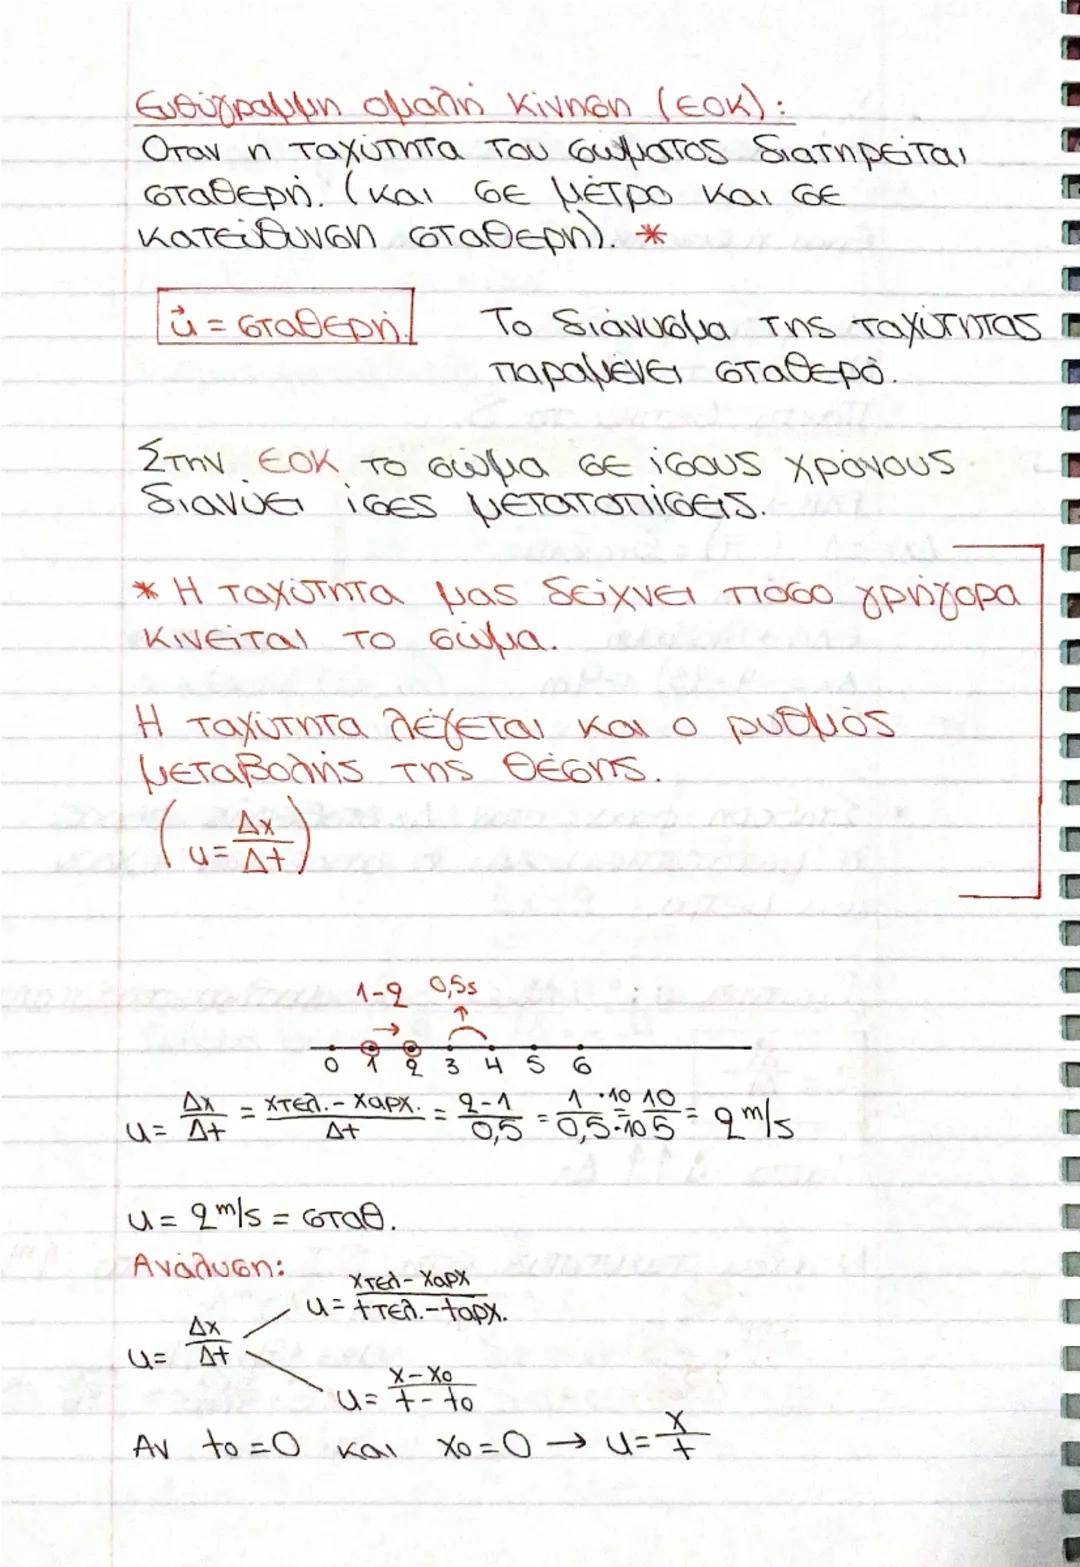 Ευθύγραμμη ομαλή κίνηση (ΕΟΚ):
Όταν η ταχύτητα του σώματος διατηρείται
σταθερή. (και σε μέτρο και σε
κατεύθυνση σταθερή). *
u⃗ = σταθερή.
Το διάνυσμα της ταχύτητας
παραμένει σταθερό.
Στην ΕΟΚ το σώμα σε ίσους χρόνους
διανύει ίσες μετατοπίσεις.
* Η ταχύτητα μας δείχνει πόσο γρήγορα
κινείται το σώμα.
Η ταχύτητα λέγεται και ο ρυθμός
μεταβολής της θέσης.
(u = Δx/Δt)
1-2 0,5s
→ ↑
0 1 2 3 4 5 6
u = Δx/Δt = (xτελ. - xαρχ.)/Δt = (2-1)/0,5 = (1 ·10)/(0,5·10) = 10/5 = 2 m/s
u = 2 m/s = σταθ.
Ανάλυση:
u = (xτελ - xαρχ)/(tτελ. - tαρχ.)
u = Δx/Δt
u = (x - x₀)/(t - t₀)
Αν t₀ = 0 και x₀ = 0 → u = x/t